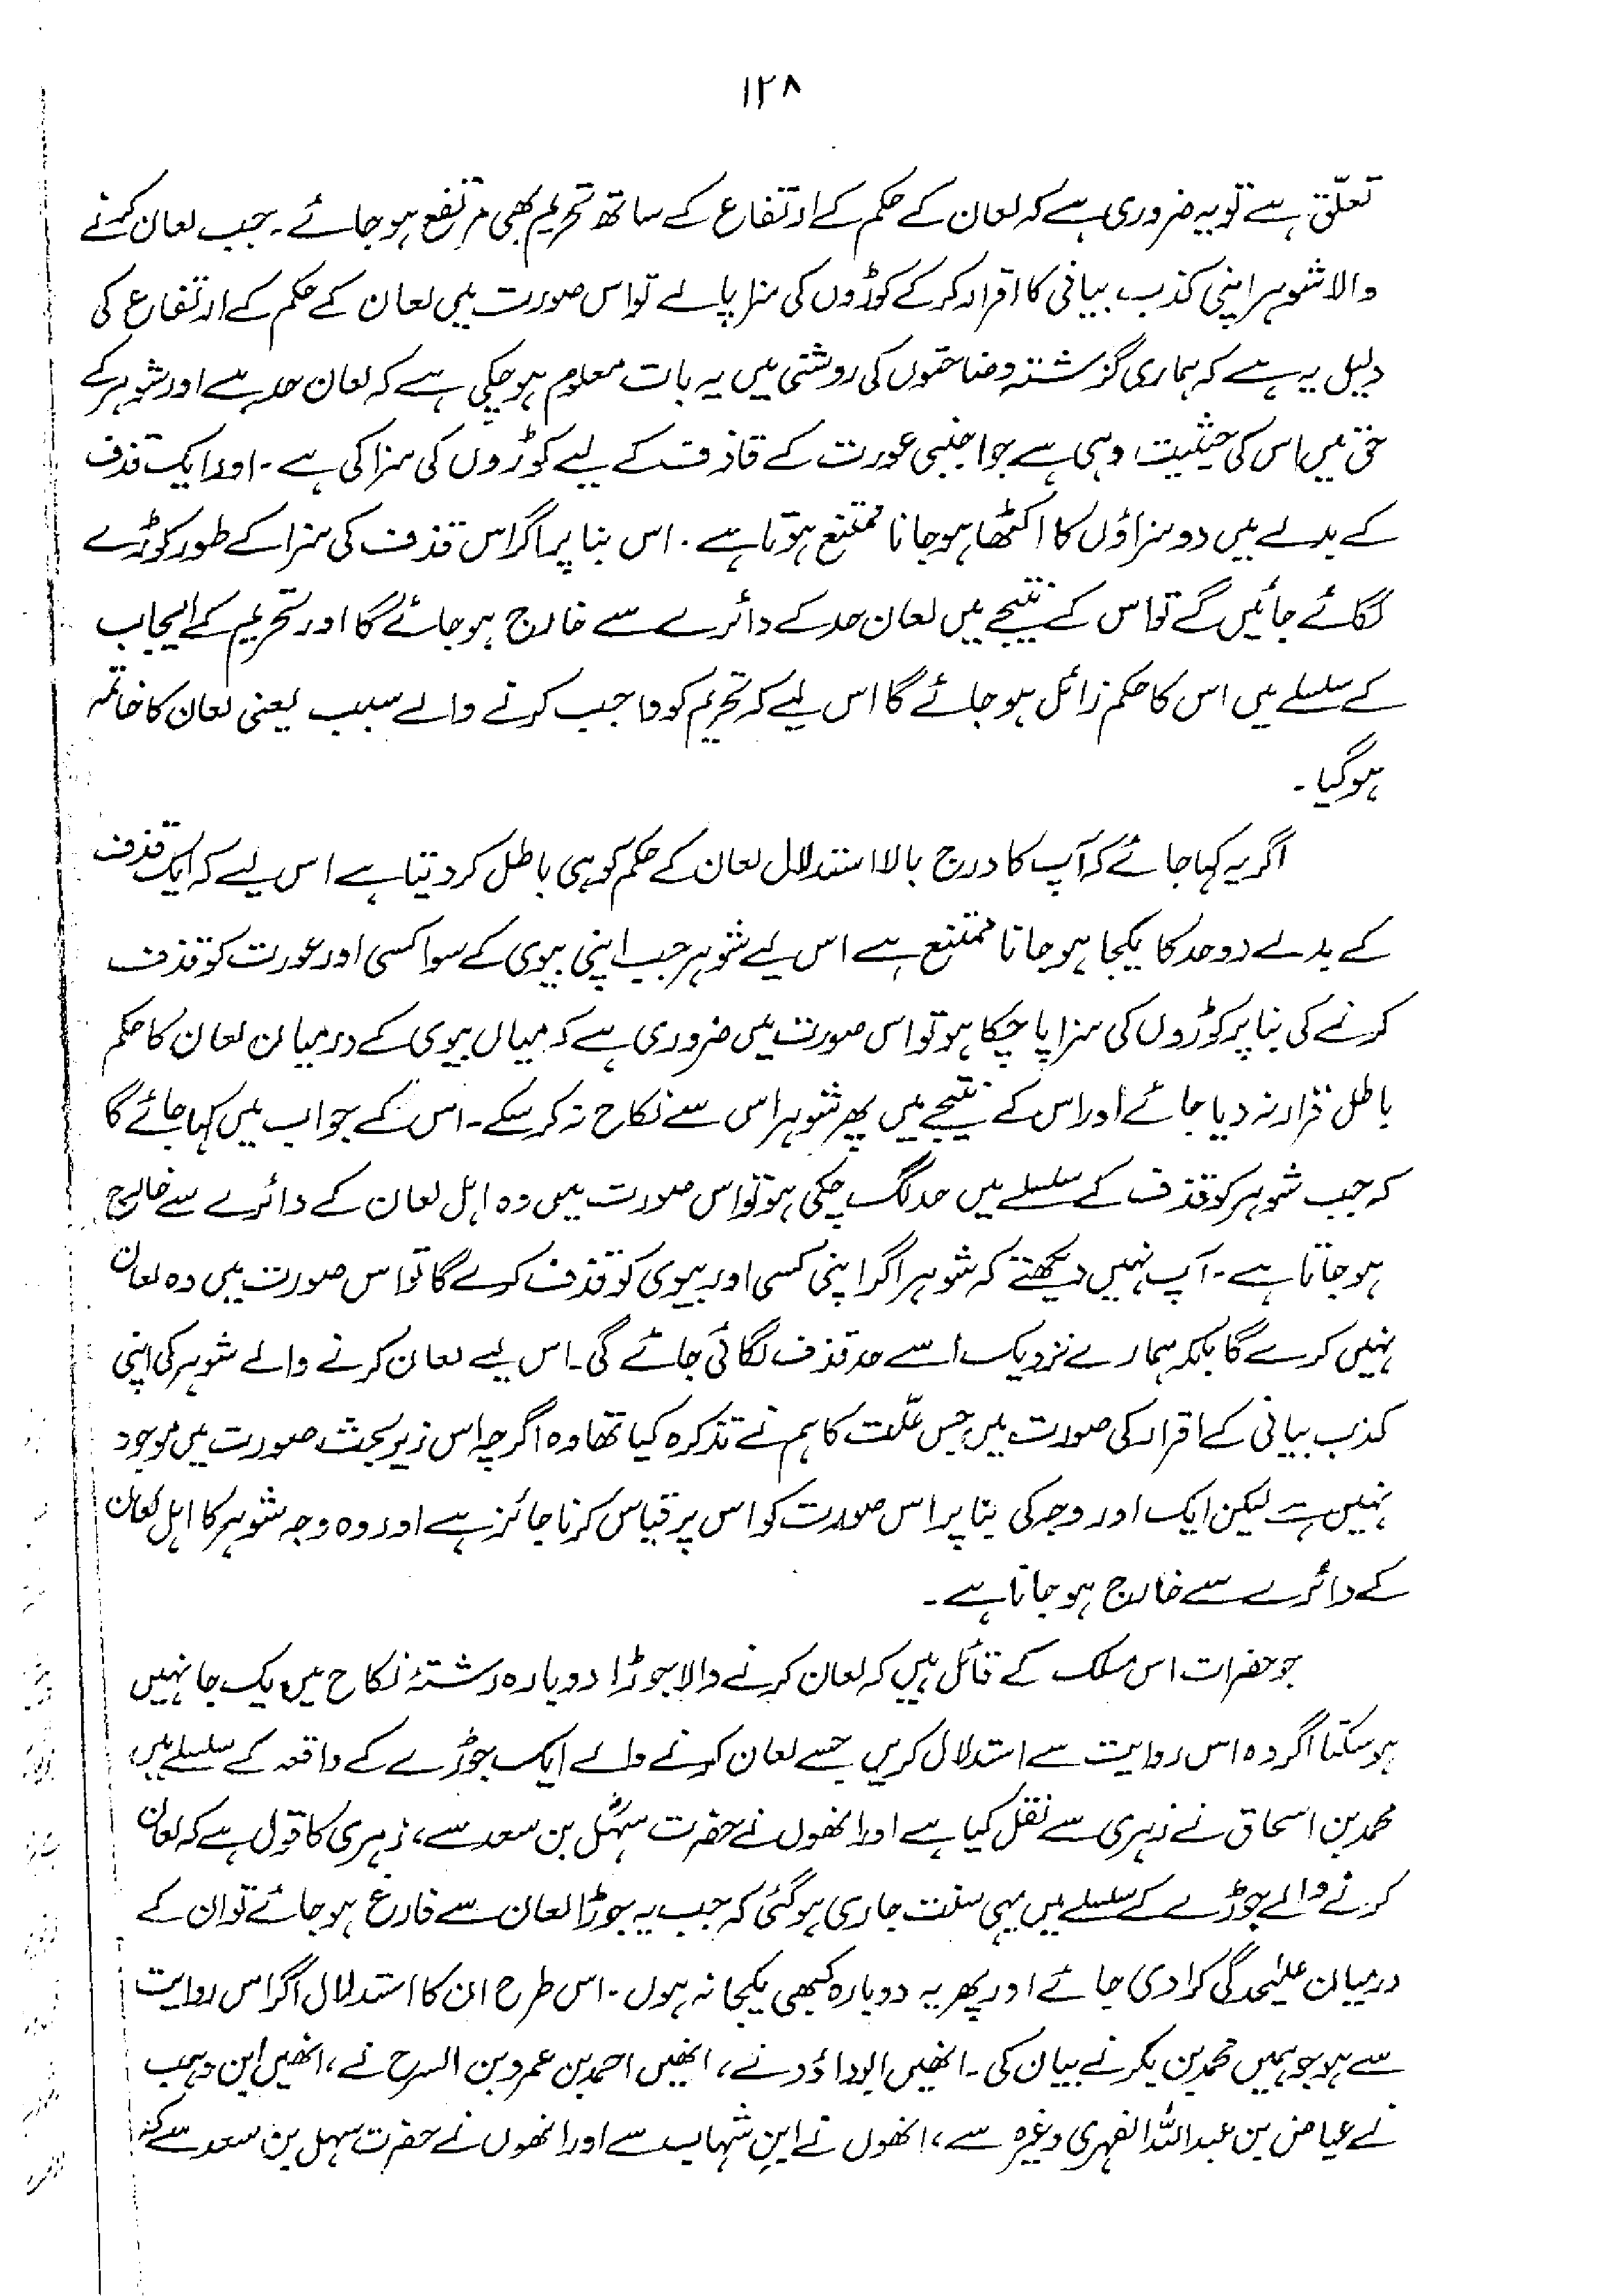 ۱۲۸
تعلّق ہے تو یہ ضروری ہے کہ لعان کے حکم کے ارتفاع کے ساتھ تحریم بھی مرتفع ہو جائے۔ جب لعان کرنے
والا شوہر اپنی کذب بیانی کا اقرار کر کے کوڑوں کی سزا پالے تو اس صورت میں لعان کے حکم کے ارتفاع کی
دلیل یہ ہے کہ ہماری گزشتہ وضاحتوں کی روشنی میں یہ بات معلوم ہو چکی ہے کہ لعان حد ہے اور شوہر کے
حق میں اس کی حیثیت وہی ہے جو اجنبی عورت کے قاذف کے لیے کوڑوں کی سزا کی ہے۔ اور ایک قذف
کے بدلے میں دو سزاؤں کا اکٹھا ہو جانا ممتنع ہوتا ہے۔ اس بنا پر اگر اس قذف کی سزا کے طور کوڑے
لگائے جائیں گے تو اس کے نتیجے میں لعان حد کے دائرے سے خارج ہو جائے گا اور تحریم کے ایجاب
کے سلسلے میں اس کا حکم زائل ہو جائے گا اس لیے کہ تحریم کو واجب کرنے والے سبب یعنی لعان کا خاتمہ
ہو گیا۔
اگر یہ کہا جائے کہ آپ کا درج بالا استدلال لعان کے حکم کو ہی باطل کر دیتا ہے اس لیے کہ ایک قذف
کے بدلے دو حد کا یکجا ہو جانا ممتنع ہے اس لیے شوہر جب اپنی بیوی کے سوا کسی اور عورت کو قذف
کرنے کی بنا پر کوڑوں کی سزا پا چکا ہو تو اس صورت میں ضروری ہے کہ میاں بیوی کے درمیان لعان کا حکم
باطل قرار نہ دیا جائے اور اس کے نتیجے میں پھر شوہر اس سے نکاح نہ کر سکے۔ اس کے جواب میں کہا جائے گا
کہ جب شوہر کو قذف کے سلسلے میں حد لگ چکی ہو تو اس صورت میں وہ اہل لعان کے دائرے سے خارج
ہو جاتا ہے۔ آپ نہیں دیکھتے کہ شوہر اگر اپنی کسی اور بیوی کو قذف کرے گا تو اس صورت میں وہ لعان
نہیں کرے گا بلکہ ہمارے نزدیک اسے حد قذف لگائی جائے گی۔ اس لیے لعان کرنے والے شوہر کی اپنی
کذب بیانی کے اقرار کی صورت میں جس علّت کا ہم نے تذکرہ کیا تھا وہ اگرچہ اس زیر بحث صورت میں موجود
نہیں ہے لیکن ایک اور وجہ کی بنا پر اس صورت کو اس پر قیاس کرنا جائز ہے اور وہ وجہ شوہر کا اہل لعان
کے دائرے سے خارج ہو جانا ہے۔
جو حضرات اس مسلک کے قائل ہیں کہ لعان کرنے والا جوڑا دوبارہ رشتۂ نکاح میں یک جا نہیں
ہو سکتا اگر وہ اس روایت سے استدلال کریں جسے لعان کرنے والے ایک جوڑے کے واقعہ کے سلسلے میں
محمد بن اسحاق نے زہری سے نقل کیا ہے اور انھوں نے حضرت سہل بن سعد سے، زہری کا قول ہے کہ لعان
کرنے والے جوڑے کے سلسلے میں یہی سنت جاری ہو گئی کہ جب یہ جوڑا لعان سے فارغ ہو جائے تو ان کے
درمیان علیحدگی کرا دی جائے اور پھر یہ دوبارہ کبھی یکجا نہ ہوں۔ اس طرح ان کا استدلال اگر اس روایت
سے ہو جو ہمیں محمد بن بکر نے بیان کی۔ انھیں ابوداؤد نے، انھیں احمد بن عمرو بن السرح نے، انھیں ابن وہب
نے عیاض بن عبداللہ الفہری وغیرہ سے، انھوں نے ابن شہاب سے اور انھوں نے حضرت سہل بن سعد سے کہ